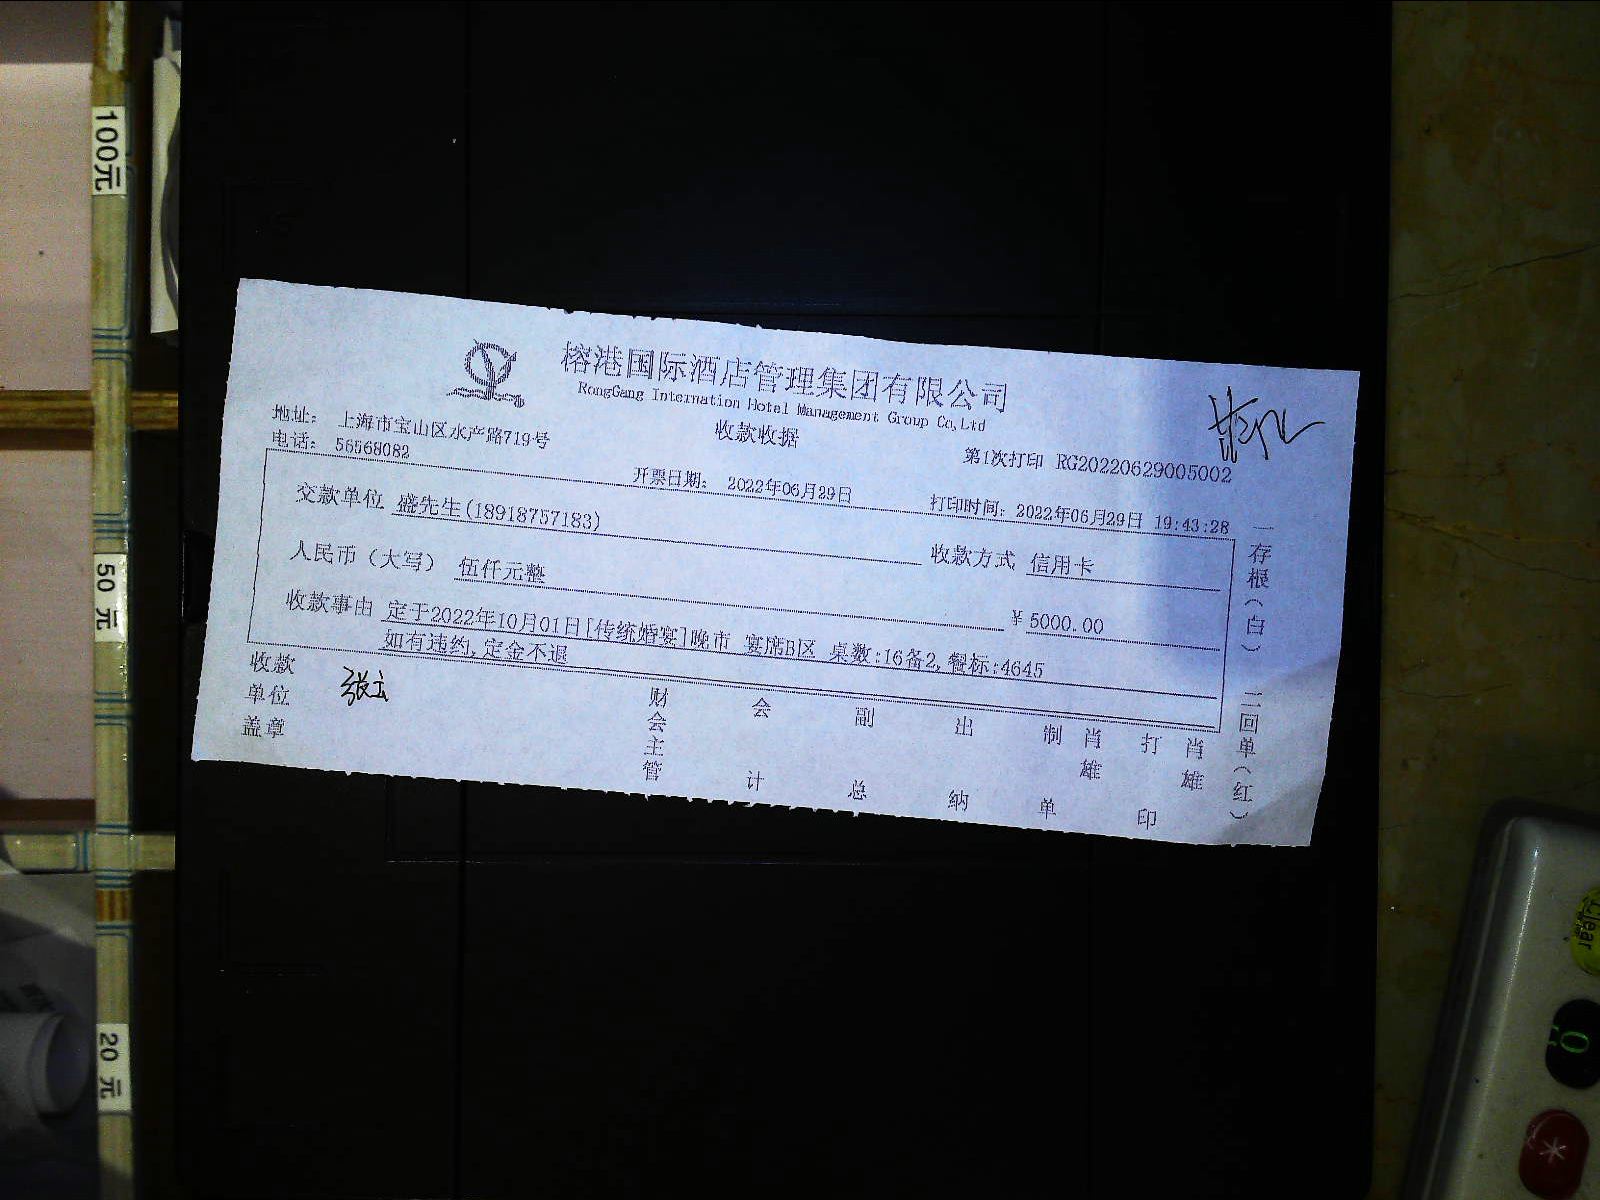 榕港国际酒店管理集团有限公司
RongGang Internation Hotel Management Group Co,Ltd
地址： 上海市宝山区水产路719号
收款收据
第1次打印 RG20220629005002
电话： 56568082
开票日期： 2022年06月29日
打印时间：2022年06月29日 19:43:28
交款单位 盛先生(18918757183)
收款方式 信用卡
人民币（大写） 伍仟元整
¥ 5000.00
收款事由 定于2022年10月01日[传统婚宴]晚市 宴席B区 桌数:16备2,餐标:4645
如有违约,定金不退
收款单位盖章
张立
财会主管
会计
副总
出纳
制单 肖雄
打印 肖雄
一存根（白） 二回单（红）
100元
50 元
20 元
Clear
0
*